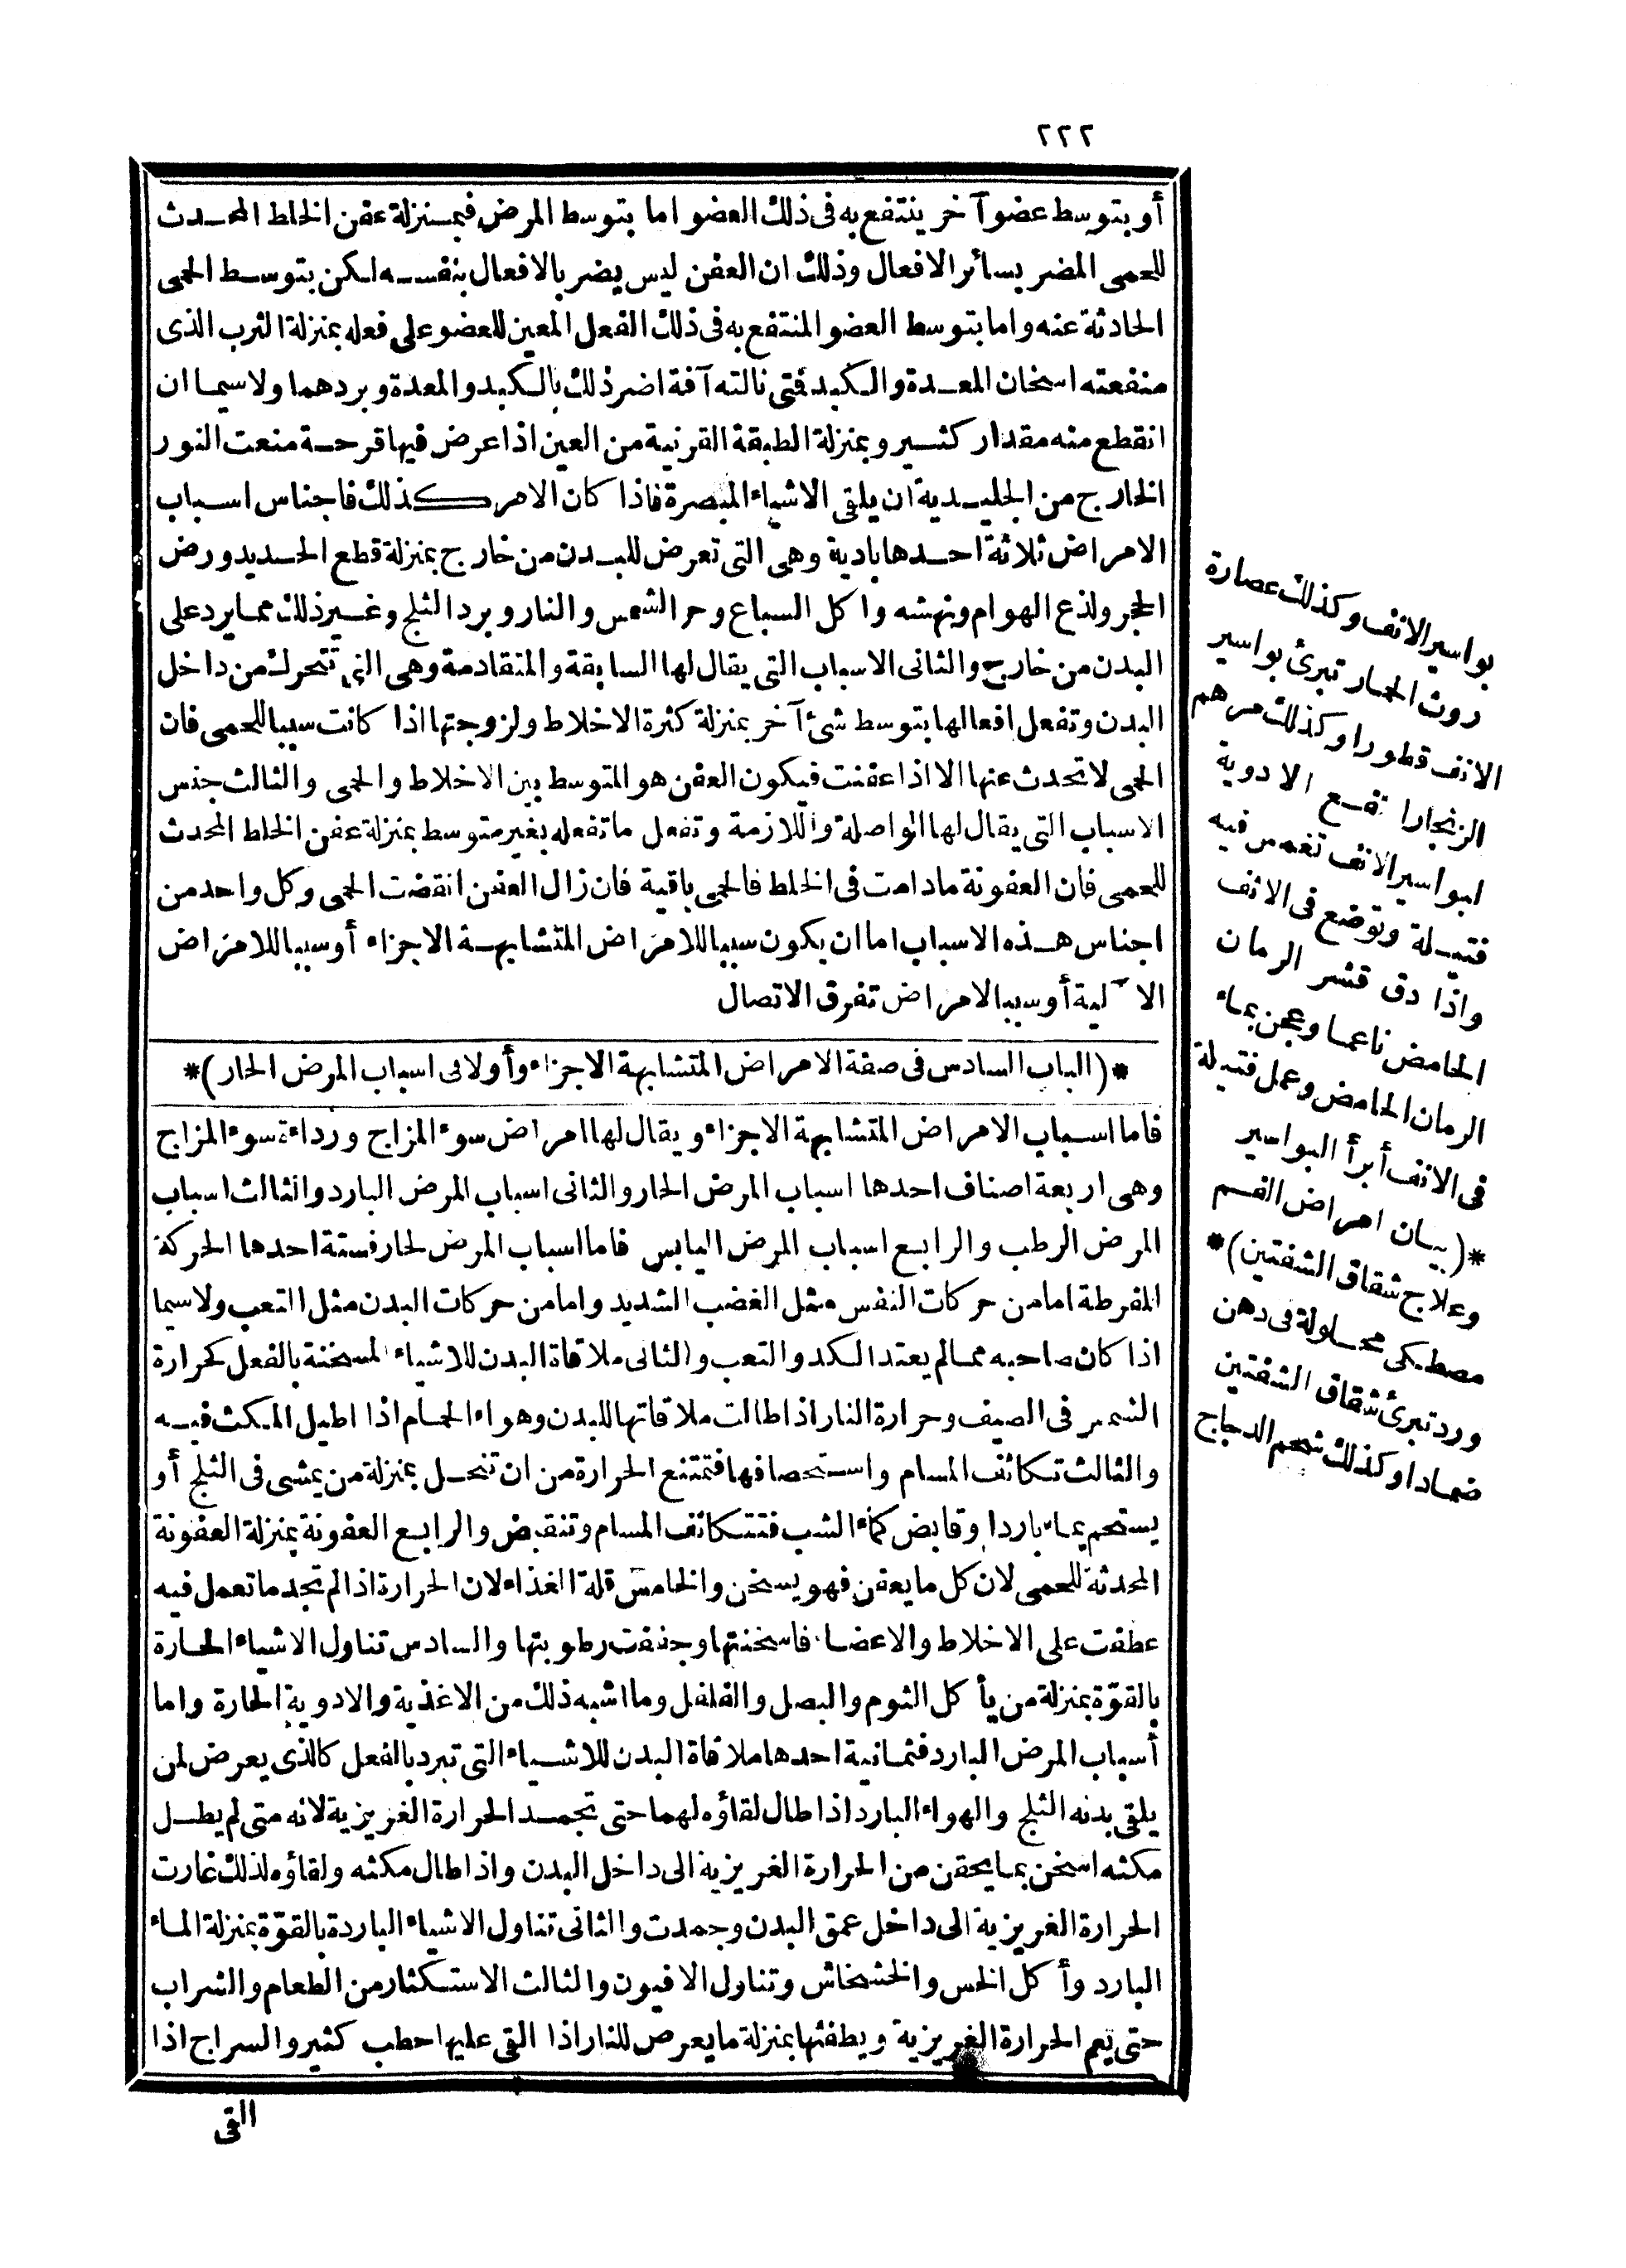 ٢٢٢
أو بتوسط عضو آخر ينتفع به فى ذلك العضو اما بتوسط المرض فبمنزلة عفن الخلط المحدث
للحمى المضر بسائر الافعال وذلك ان العفن ليس يضر بالافعال بنفسه لكن بتوسط الحمى
الحادثة عنه واما بتوسط العضو المنتفع به فى ذلك الفعل المعين للعضو على فعله بمنزلة الثرب الذى
منفعته اسخان المعدة والكبد فتى نالته آفة اضر ذلك بالكبد والمعدة وبردهما ولا سيما ان
انقطع منه مقدار كثير وبمنزلة الطبقة القرنية من العين اذا عرض فيها قرحة منعت النور
الخارج من الجليدية ان يلقى الاشياء المبصرة فاذا كان الامر كذلك فاجناس اسباب
الامراض ثلاثة احدها بادية وهى التى تعرض للبدن من خارج بمنزلة قطع الحديد ورض
الحجر ولذع الهوام ونهشه واكل السباع وحر الشمس والنار وبرد الثلج وغير ذلك مما يرد على
البدن من خارج والثانى الاسباب التى يقال لها السابقة والمتقادمة وهى التى تتحرك من داخل
البدن وتفعل افعالها بتوسط شئ آخر بمنزلة كثرة الاخلاط ولزوجتها اذا كانت سببا للحمى فان
الحمى لا تحدث عنها الا اذا عفنت فيكون العفن هو المتوسط بين الاخلاط والحمى والثالث جنس
الاسباب التى يقال لها الواصلة واللازمة وتفعل ما تفعله بغير متوسط بمنزلة عفن الخلط المحدث
للحمى فان العفونة ما دامت فى الخلط فالحمى باقية فان زال العفن انقضت الحمى وكل واحد من
اجناس هذه الاسباب اما ان يكون سببا للامراض المتشابهة الاجزاء أو سببا للامراض
الآلية أو سببا لامراض تفرق الاتصال
*(الباب السادس فى صفة الامراض المتشابهة الاجزاء وأولا فى اسباب المرض الحار)*
فاما اسباب الامراض المتشابهة الاجزاء ويقال لها امراض سوء المزاج ورداءة سوء المزاج
وهى اربعة اصناف احدها اسباب المرض الحار والثانى اسباب المرض البارد والثالث اسباب
المرض الرطب والرابع اسباب المرض اليابس فاما اسباب المرض لحار فستة احدها الحركة
المفرطة اما من حركات النفس مثل الغضب الشديد واما من حركات البدن مثل التعب ولا سيما
اذا كان صاحبه مما لم يعتد الكد والتعب والثانى ملاقاة البدن للاشياء المسخنة بالفعل كحرارة
الشمس فى الصيف وحرارة النار اذا طالت ملاقاتها للبدن وهواء الحمام اذا اطيل المكث فيه
والثالث تكاثف المسام واستحصافها فتمتنع الحرارة من ان تنحل بمنزلة من يمشى فى الثلج أو
يستحم بماء بارد او قابض كماء الشب فتتكاثف المسام وتنقبض والرابع العفونة بمنزلة العفونة
المحدثة للحمى لان كل ما يعفن فهو يسخن والخامس قلة الغذاء لان الحرارة اذا لم تجد ما تعمل فيه
عطفت على الاخلاط والاعضاء فاسخنتها وجففت رطوبتها والسادس تناول الاشياء الحارة
بالقوّة بمنزلة من يأكل الثوم والبصل والفلفل وما اشبه ذلك من الاغذية والادوية الحارة واما
أسباب المرض البارد فثمانية احدها ملاقاة البدن للاشياء التى تبرد بالفعل كالذى يعرض لمن
يلقى بدنه الثلج والهواء البارد اذا طال لقاؤه لهما حتى تجمد الحرارة الغريزية لانه متى لم يطل
مكثه اسخن بما يحقن من الحرارة الغريزية الى داخل البدن واذا طال مكثه ولقاؤه لذلك غارت
الحرارة الغريزية الى داخل عمق البدن وجمدت والثانى تناول الاشياء الباردة بالقوّة بمنزلة الماء
البارد وأكل الخس والخشخاش وتناول الافيون والثالث الاستكثار من الطعام والشراب
حتى يغم الحرارة الغريزية ويطفئها بمنزلة ما يعرض للنار اذا القى عليها حطب كثير والسراج اذا
القى
بواسير الانف وكذلك عصارة
روث الحمار تبرئ بواسير
الانف قطورا وكذلك مرهم
الزنجار انفع الادوية
لبواسير الانف تغمس فيه
فتيلة وتوضع فى الانف
واذا دق قشر الرمان
الحامض ناعما وعجن بماء
الرمان الحامض وعمل فتيلة
فى الانف أبرأ البواسير
*(بيان امراض الفم
وعلاج شقاق الشفتين)*
مصطكى محلولة فى دهن
ورد تبرئ شقاق الشفتين
ضمادا وكذلك شحم الدجاج